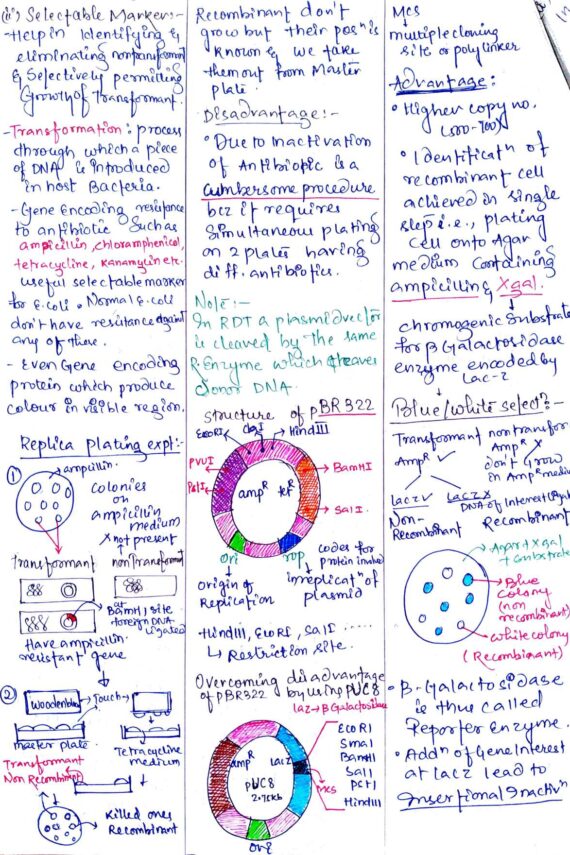 (ii) Selectable Marker:-
-Help in Identifying &
eliminating nontransformant
& Selectively permitting
Growth of Transformant.
-Transformation: process
through which a piece
of DNA is introduced
in host Bacteria.
-Gene Encoding resistance
to antibiotic Such as
ampicillin, chloramphenicol,
tetracycline, Kanamycin etc.
useful selectable marker
for E.coli. Normal E.coli
don't have resistance against
any of these.
- Even Gene encoding
protein which produce
colour in visible region.
Replica plating expt:-
①
ampicillin
Colonies
on
ampicillin
medium
X not present
transformant
nonTransformt
at
BamHI site
foreign DNA
ligated
Have ampicillin
resistant gene
②
Woodenblock
Touch
master plate
Tetracycline
medium
Transformant
Non Recombinant
Killed ones
Recombinant
Recombinant don't
grow but their posn is
known & we take
them out from Master
plate.
Disadvantage:-
• Due to Inactivation
of Antibiotic is a
cumbersome procedure
bcz it requires
Simultaneous plating
on 2 plates having
diff. antibiotics.
Note:-
In RDT a plasmid vector
is cleaved by the same
R.Enzyme which cleaves
donor DNA.
Structure of pBR322
EcoRI
claI
HindIII
PVUI
PstI
BamHI
SalI
ampR
tetR
Ori
rop
codes for
protein involved
in replicatn of
plasmid
Origin of
Replication
HindIII, EcoRI, SalI .....
↳ Restriction site.
Overcoming disadvantage
of pBR322 by using PUC8
lacz→β Galactosidase
ampR
lacZ
pUC8
2.75kb
EcoRI
SmaI
BamHI
SalI
PstI
HindIII
MCS
Ori
MCS
↓
multiple cloning
site or polylinker
Advantage:
• Higher copy no.
(500-700)
• Identificatn of
recombinant cell
achieved in single
step i.e., plating
cell onto Agar
medium containing
ampicillin & Xgal.
↓
chromogenic Substrate
for β Galactosidase
enzyme encoded by
Lac-Z
Blue/white selectn:-
Transformant
AmpR ✓
nontransfor
AmpR X
don't Grow
in AmpR medium
lacZ ✓
lacZ X
DNA of Interest
Non-
Recombinant
Recombinant
Agar + Xgal
+ Substrate
Blue
Colony
(non
recombinant)
White colony
(Recombinant)
• β-Galactosidase
is thus called
Reporter Enzyme.
• Addn of Gene Interest
at lacZ lead to
Insertional Inactivn